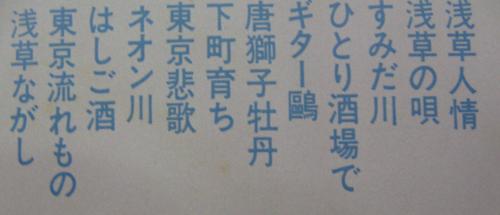 浅草人情
浅草の唄
すみだ川
ひとり酒場で
ギター鷗
唐獅子牡丹
下町育ち
東京悲歌
ネオン川
はしご酒
東京流れもの
浅草ながし